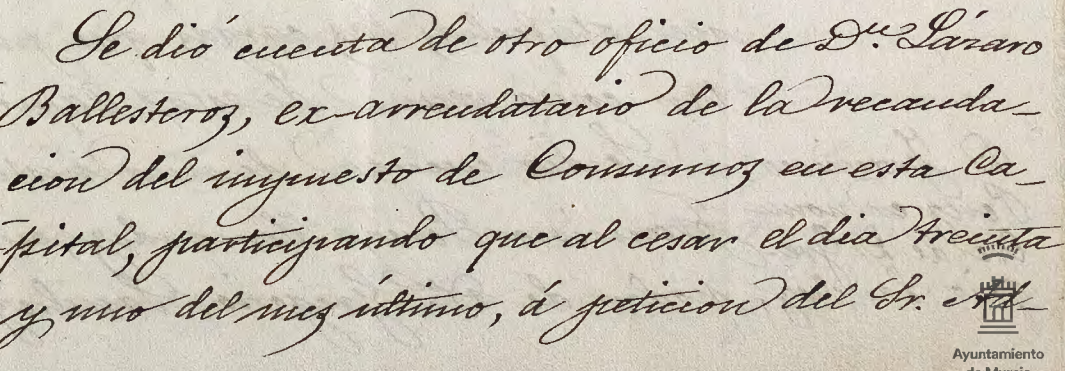 Se dió cuenta de otro oficio de Dn. Lázaro
Ballesteros, ex-arrendatario de la recauda-
cion del impuesto de Consumos en esta Ca-
pital, participando que al cesar el dia treinta
y uno del mes último, á peticion del Sr. Al-
Ayuntamiento
de Murcia